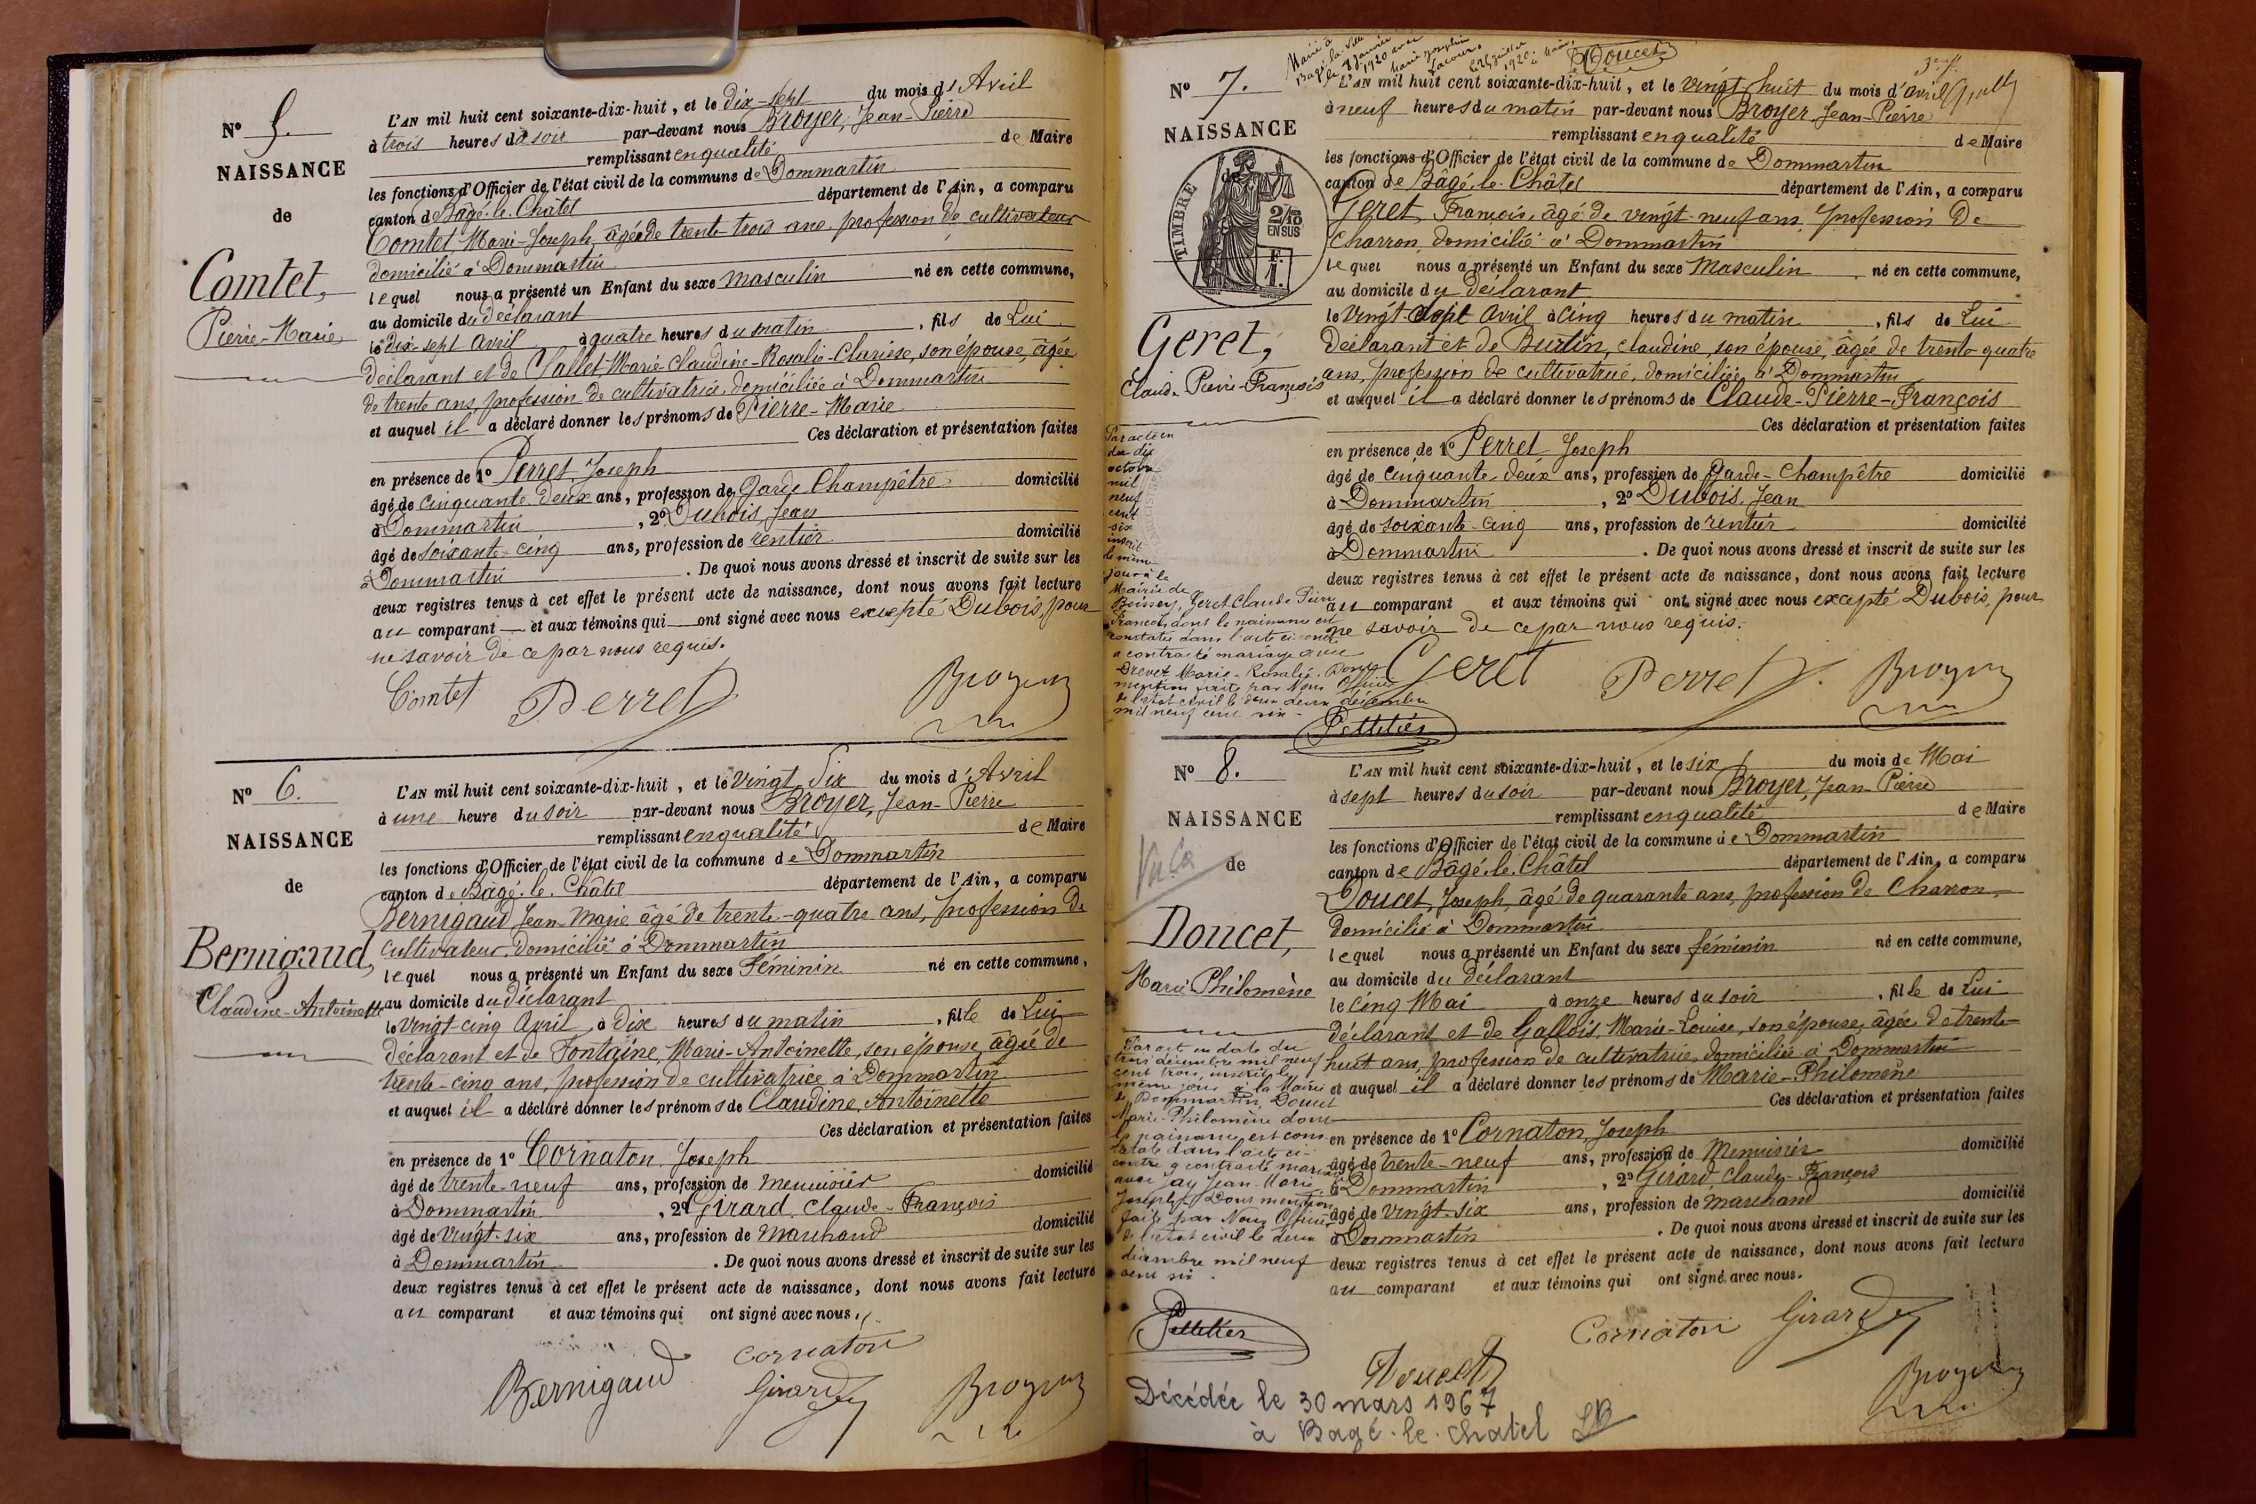 N° 5.
NAISSANCE
de
Comtet,
Pierre-Marie
L'AN mil huit cent soixante-dix-huit, et le dix-sept du mois d'Avril
à trois heures du soir par-devant nous Broyer, Jean-Pierre
remplissant en qualité de Maire
les fonctions d'Officier de l'état civil de la commune de Dommartin
canton de Bâgé-le-Châtel département de l'Ain, a comparu
Comtet, Marie-Joseph, âgé de trente-trois ans, profession de cultivateur
domicilié à Dommartin
lequel nous a présenté un Enfant du sexe masculin né en cette commune,
au domicile du déclarant
le dix-sept avril à quatre heures du matin, fils de Lui
déclarant et de Marie-Claudine-Rosalie-Clarisse, son épouse, âgée
de trente ans, profession de cultivatrice, domiciliée à Dommartin
et auquel il a déclaré donner les prénoms de Pierre-Marie
Ces déclaration et présentation faites
en présence de 1° Perret, Joseph
âgé de cinquante-deux ans, profession de Garde-Champêtre domicilié
à Dommartin, 2° Dubois, Jean
âgé de soixante-cinq ans, profession de rentier domicilié
à Dommartin. De quoi nous avons dressé et inscrit de suite sur les
deux registres tenus à cet effet le présent acte de naissance, dont nous avons fait lecture
au comparant et aux témoins qui ont signé avec nous excepté Dubois, pour
ne savoir de ce par nous requis.
Comtet Perret Broyer
N° 6.
NAISSANCE
de
Bernigaud,
Claudine-Antoinette
L'AN mil huit cent soixante-dix-huit, et le Vingt-Six du mois d'Avril
à une heure du soir par-devant nous Broyer, Jean-Pierre
remplissant en qualité de Maire
les fonctions d'Officier de l'état civil de la commune de Dommartin
canton de Bâgé-le-Châtel département de l'Ain, a comparu
Bernigaud Jean-Marie âgé de trente-quatre ans, profession de
Cultivateur, domicilié à Dommartin
lequel nous a présenté un Enfant du sexe Féminin né en cette commune,
au domicile du déclarant
le Vingt-cinq Avril à dix heures du matin, fille de Lui
déclarant et de Fontaine, Marie-Antoinette, son épouse, âgée de
trente-cinq ans, profession de cultivatrice à Dommartin
et auquel il a déclaré donner les prénoms de Claudine, Antoinette
Ces déclaration et présentation faites
en présence de 1° Cornaton, Joseph
âgé de trente-neuf ans, profession de menuisier domicilié
à Dommartin, 2° Girard, Claude-François
âgé de Vingt-six ans, profession de Marchand domicilié
à Dommartin. De quoi nous avons dressé et inscrit de suite sur les
deux registres tenus à cet effet le présent acte de naissance, dont nous avons fait lecture
au comparant et aux témoins qui ont signé avec nous.
Bernigaud Cornaton Girard Broyer
Marié à
Bagé-la-Ville
le 8 Janvier
1920 avec
Marie Joséphin
Doucet
N° 7.
NAISSANCE
de
TIMBRE
2/10 EN SUS
F. 1.
Geret,
Claude-Pierre-François
L'AN mil huit cent soixante-dix-huit, et le Vingt-huit du mois d'avril
à neuf heures du matin par-devant nous Broyer, Jean-Pierre
remplissant en qualité de Maire
les fonctions d'Officier de l'état civil de la commune de Dommartin
canton de Bâgé-le-Châtel département de l'Ain, a comparu
Geret, François, âgé de vingt-neuf ans, profession De
Charron, domicilié à Dommartin
lequel nous a présenté un Enfant du sexe Masculin né en cette commune,
au domicile du déclarant
le Vingt-Sept Avril à Cinq heures du matin, fils de Lui
Déclarant et de Burtin, Claudine, son épouse, âgée de trente-quatre
ans, profession de cultivatrice, domiciliée à Dommartin
et auquel il a déclaré donner les prénoms de Claude-Pierre-François
Ces déclaration et présentation faites
en présence de 1° Perret, Joseph
âgé de cinquante-deux ans, profession de Garde-Champêtre domicilié
à Dommartin, 2° Dubois, Jean
âgé de soixante-cinq ans, profession de rentier domicilié
à Dommartin. De quoi nous avons dressé et inscrit de suite sur les
deux registres tenus à cet effet le présent acte de naissance, dont nous avons fait lecture
au comparant et aux témoins qui ont signé avec nous excepté Dubois, pour
ne savoir de ce par nous requis.
Geret Perret Broyer
Par acte en
du dix
octobre
mil
neuf
cent
six
inscrit
le même
jour à la
Mairie de
Boissey, Geret Claude Pierre
François, dont la naissance est
constatée dans l'acte ci-contre
a contracté mariage avec
Drevet Marie-Rosalie. Dont
mention faite par Nous Officier
de l'état civil le deux décembre
mil neuf cent six.
Pelletier
N° 8.
NAISSANCE
de
Doucet,
Marie-Philomène
L'AN mil huit cent soixante-dix-huit, et le six du mois de Mai
à sept heures du soir par-devant nous Broyer, Jean-Pierre
remplissant en qualité de Maire
les fonctions d'Officier de l'état civil de la commune de Dommartin
canton de Bâgé-le-Châtel département de l'Ain, a comparu
Doucet, Joseph, âgé de quarante ans, profession de Charron
domicilié à Dommartin
lequel nous a présenté un Enfant du sexe féminin né en cette commune,
au domicile du déclarant
le Cinq Mai à onze heures du soir, fille de Lui
déclarant et de Gallois, Marie-Louise, son épouse, âgée de trente-
huit ans, profession de cultivatrice, domiciliée à Dommartin
et auquel il a déclaré donner les prénoms de Marie-Philomène
Ces déclaration et présentation faites
en présence de 1° Cornaton, Joseph
âgé de trente-neuf ans, profession de Menuisier domicilié
à Dommartin, 2° Girard, Claude-François
âgé de vingt-six ans, profession de marchand domicilié
à Dommartin. De quoi nous avons dressé et inscrit de suite sur les
deux registres tenus à cet effet le présent acte de naissance, dont nous avons fait lecture
au comparant et aux témoins qui ont signé avec nous.
Cornaton Girard
Doucet Broyer
Par acte en date du
trois décembre mil neuf
cent trois, inscrit le
même jour à la Mairie
de Dommartin, Doucet
Marie-Philomène dont
la naissance est cons-
tatée dans l'acte ci-
contre a contracté mariage
avec Jay Jean-Marie
Joseph. Dont mention
faite par Nous Officier
de l'état civil le deux
décembre mil neuf
cent six.
Pelletier
Décédée le 30 mars 1967
à Bagé-le-Chatel